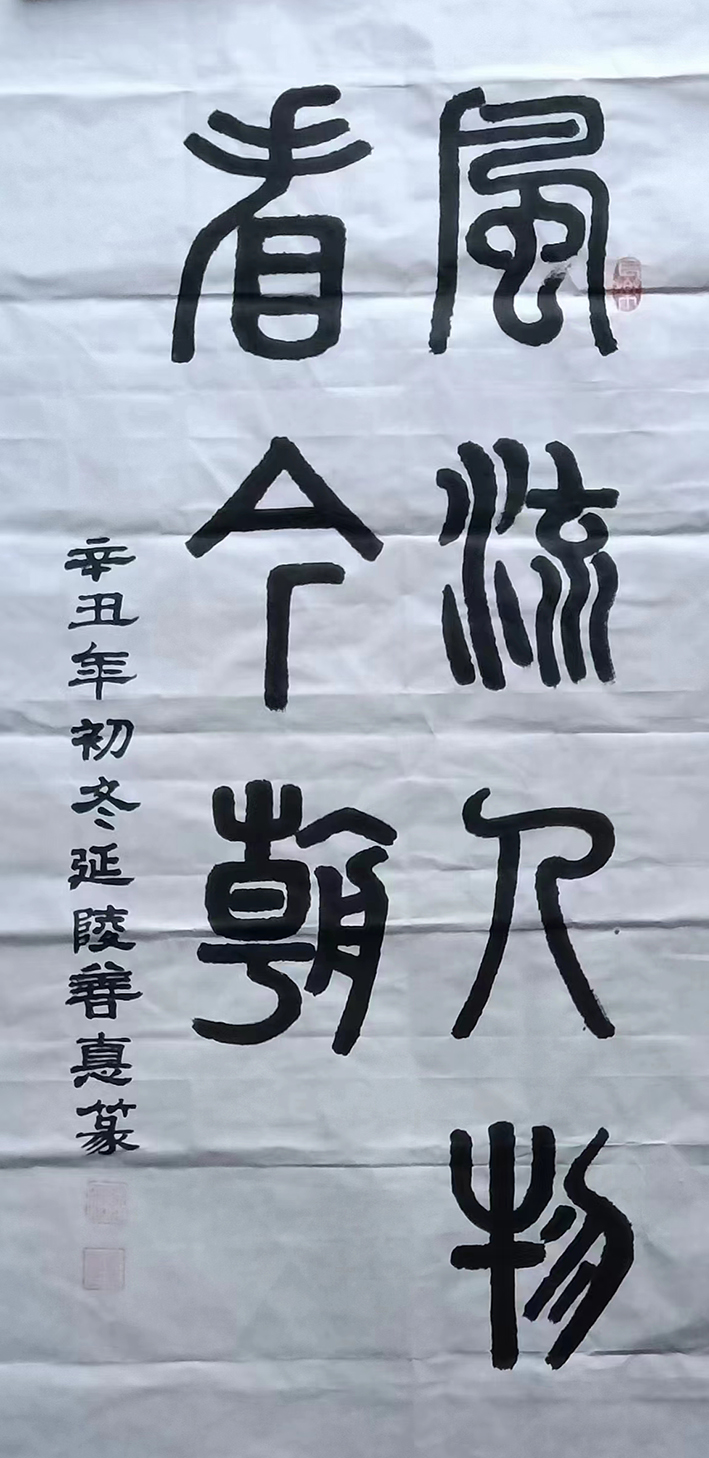 風流人物
看今朝
辛丑年初冬延陵善惪篆